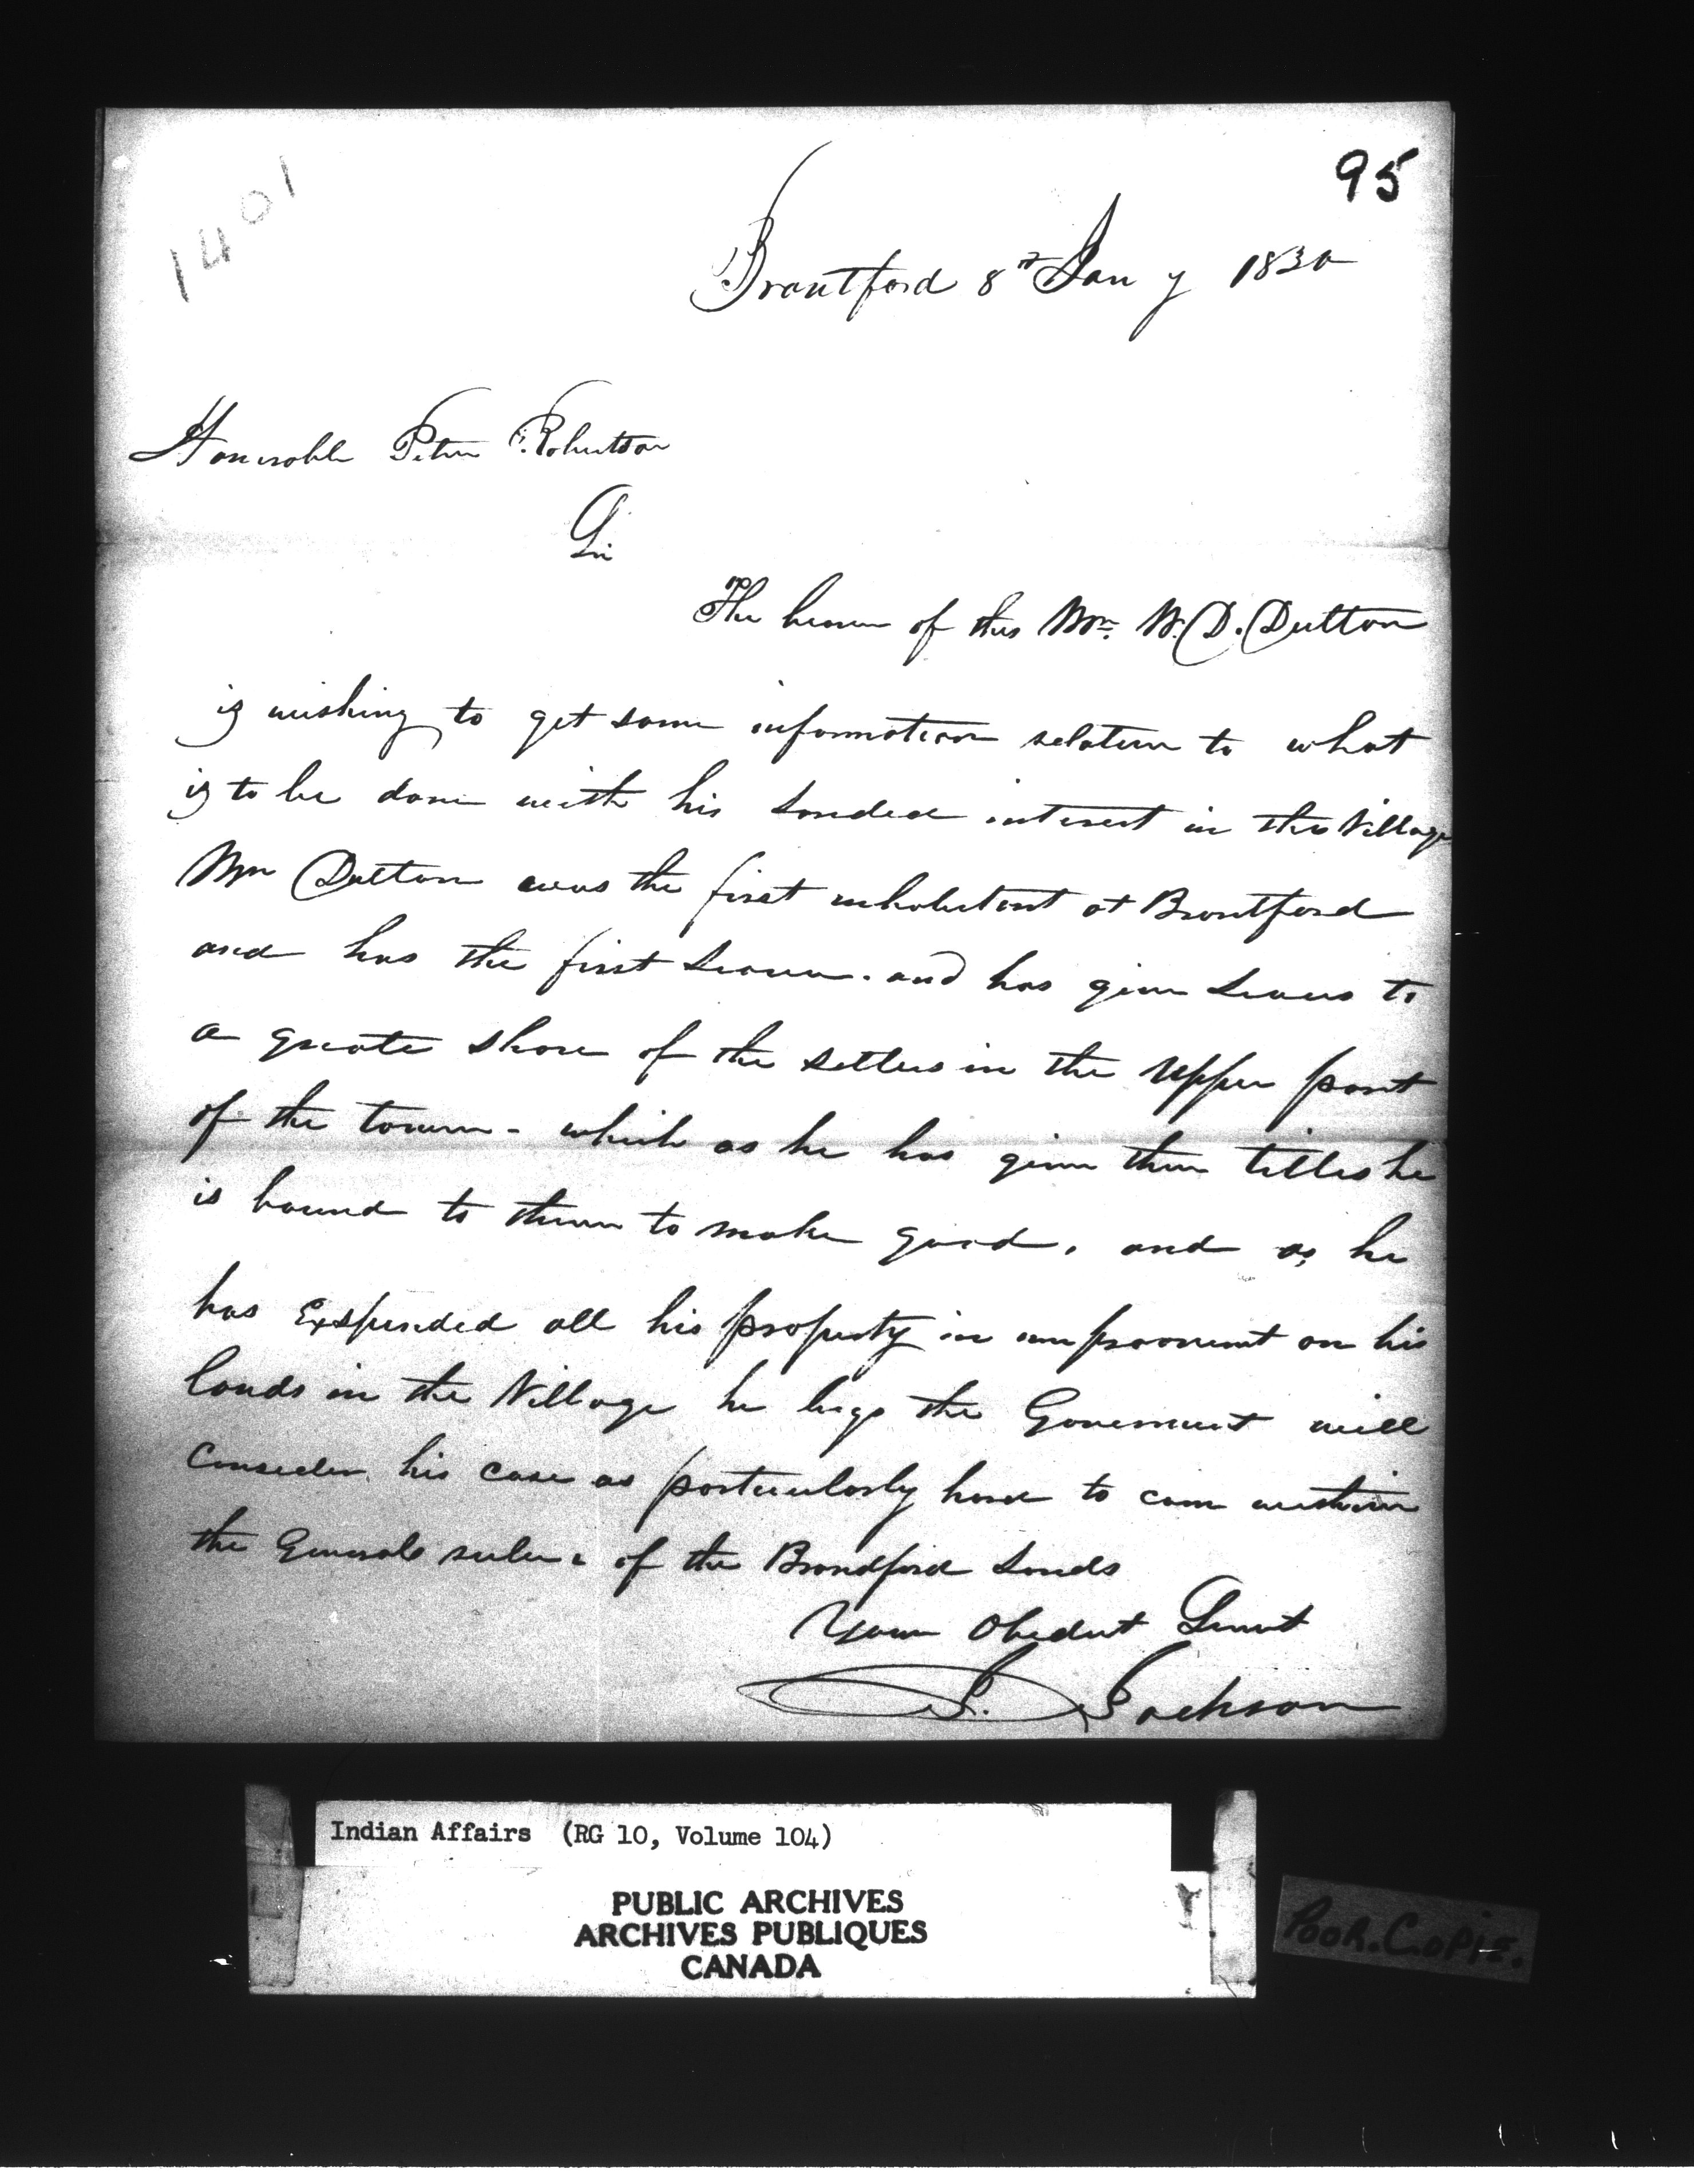 95
1401
Brantford 8th Jany 1830
Honorable Peter Robertson
Sir
The bearer of this Mr. W. D. Dutton
is wishing to get some information relative to what
is to be done with his Landed interest in the Village
Mr Dutton was the first inhabitant at Brantford
and has the first Leave. and has given Leaves to
a greate share of the settlers in the Upper part
of the town - which as he has given them titles he
is bound to them to make good, and as he
has Expended all his property in improvement on his
lands in the Village he begs the Goverment will
Consider his case as particularly hard to come within
the Generale rule of the Brandford Lands
Your Obedient Servt
S. Jackson
Indian Affairs (RG 10, Volume 104)
PUBLIC ARCHIVES
ARCHIVES PUBLIQUES
CANADA
Poor. Copie.